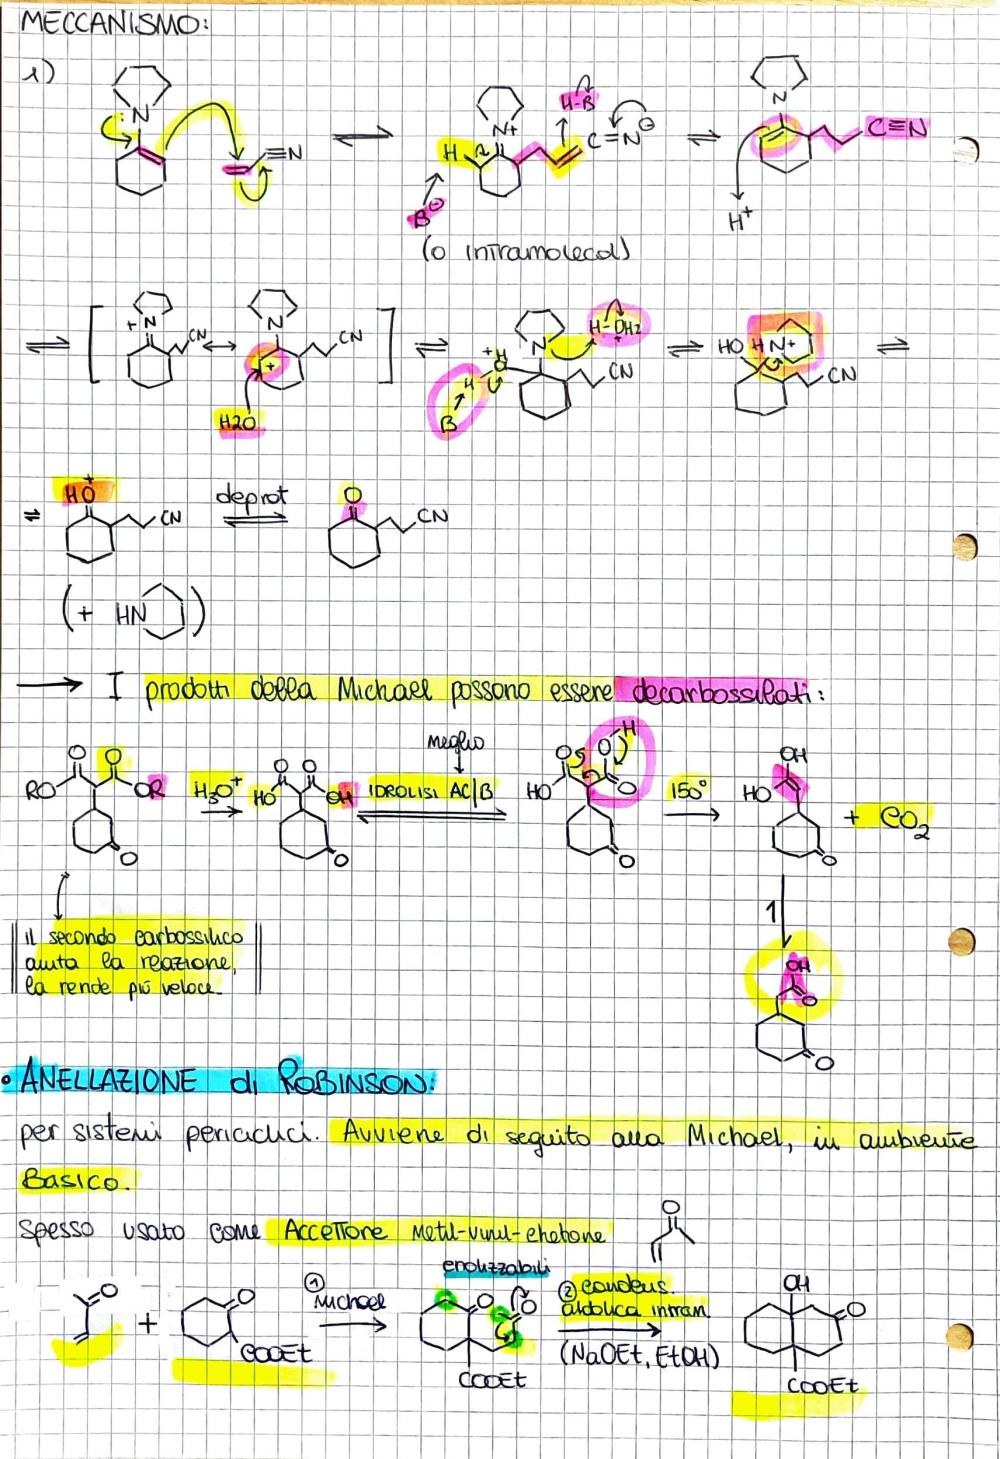 MECCANISMO:
1)
N
≡N
H N+ H-B C≡N ⊖
B⊖
(o intramolecol)
N
C≡N
H+
+N CN N CN
H2O
N H-OH2 +
+ H O H CN
B
HO H N+ CN
HO + CN deprot O CN
(+ HN )
→ I prodotti della Michael possono essere decarbossilati:
RO O O OR H3O+ HO O O OH meglio IDROLISI AC/B HO O O H O 150° HO OH + CO2
O O O O
il secondo carbossilico
aiuta la reazione,
la rende più veloce.
1
OH
O
O
• ANELLAZIONE di ROBINSON:
per sistemi periciclici. Avviene di seguito alla Michael, in ambiente
Basico.
spesso usato come Accettore metil-vinil-chetone O
enolizzabili
O + O COOEt ① Michael O O COOEt ② condens. aldolica intram. (NaOEt, EtOH) OH O COOEt